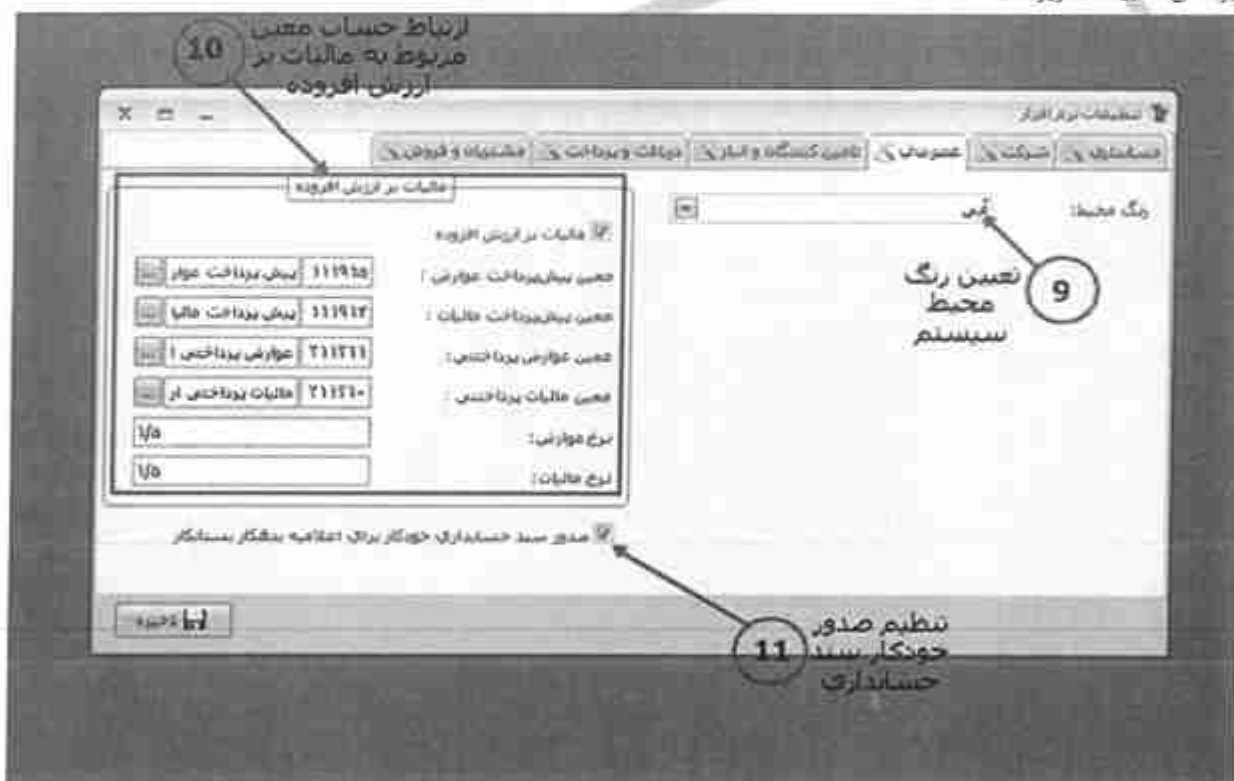 ارتباط حساب معین
مربوط به مالیات بر
ارزش افزوده
10
تنظیمات نرم افزار
حسابداری
شرکت
عمومی
تامین کنندگان و انبار
دریافت و پرداخت
مشتریان و فروش
رنگ محیط:
آبی
9
تعیین رنگ
محیط
سیستم
مالیات بر ارزش افزوده
مالیات بر ارزش افزوده
معین پیش‌پرداخت عوارض :
۱۱۱۹۱۵ پیش پرداخت عوار
معین پیش‌پرداخت مالیات :
۱۱۱۹۱۴ پیش پرداخت مالیا
معین عوارض پرداختنی :
۲۱۱۲۶۱ عوارض پرداختنی ا
معین مالیات پرداختنی :
۲۱۱۲۶۰ مالیات پرداختنی ار
نرخ عوارض:
۱/۵
نرخ مالیات:
۱/۵
صدور سند حسابداری خودکار برای اعلامیه بدهکار بستانکار
ذخیره
11
تنظیم صدور
خودکار سند
حسابداری